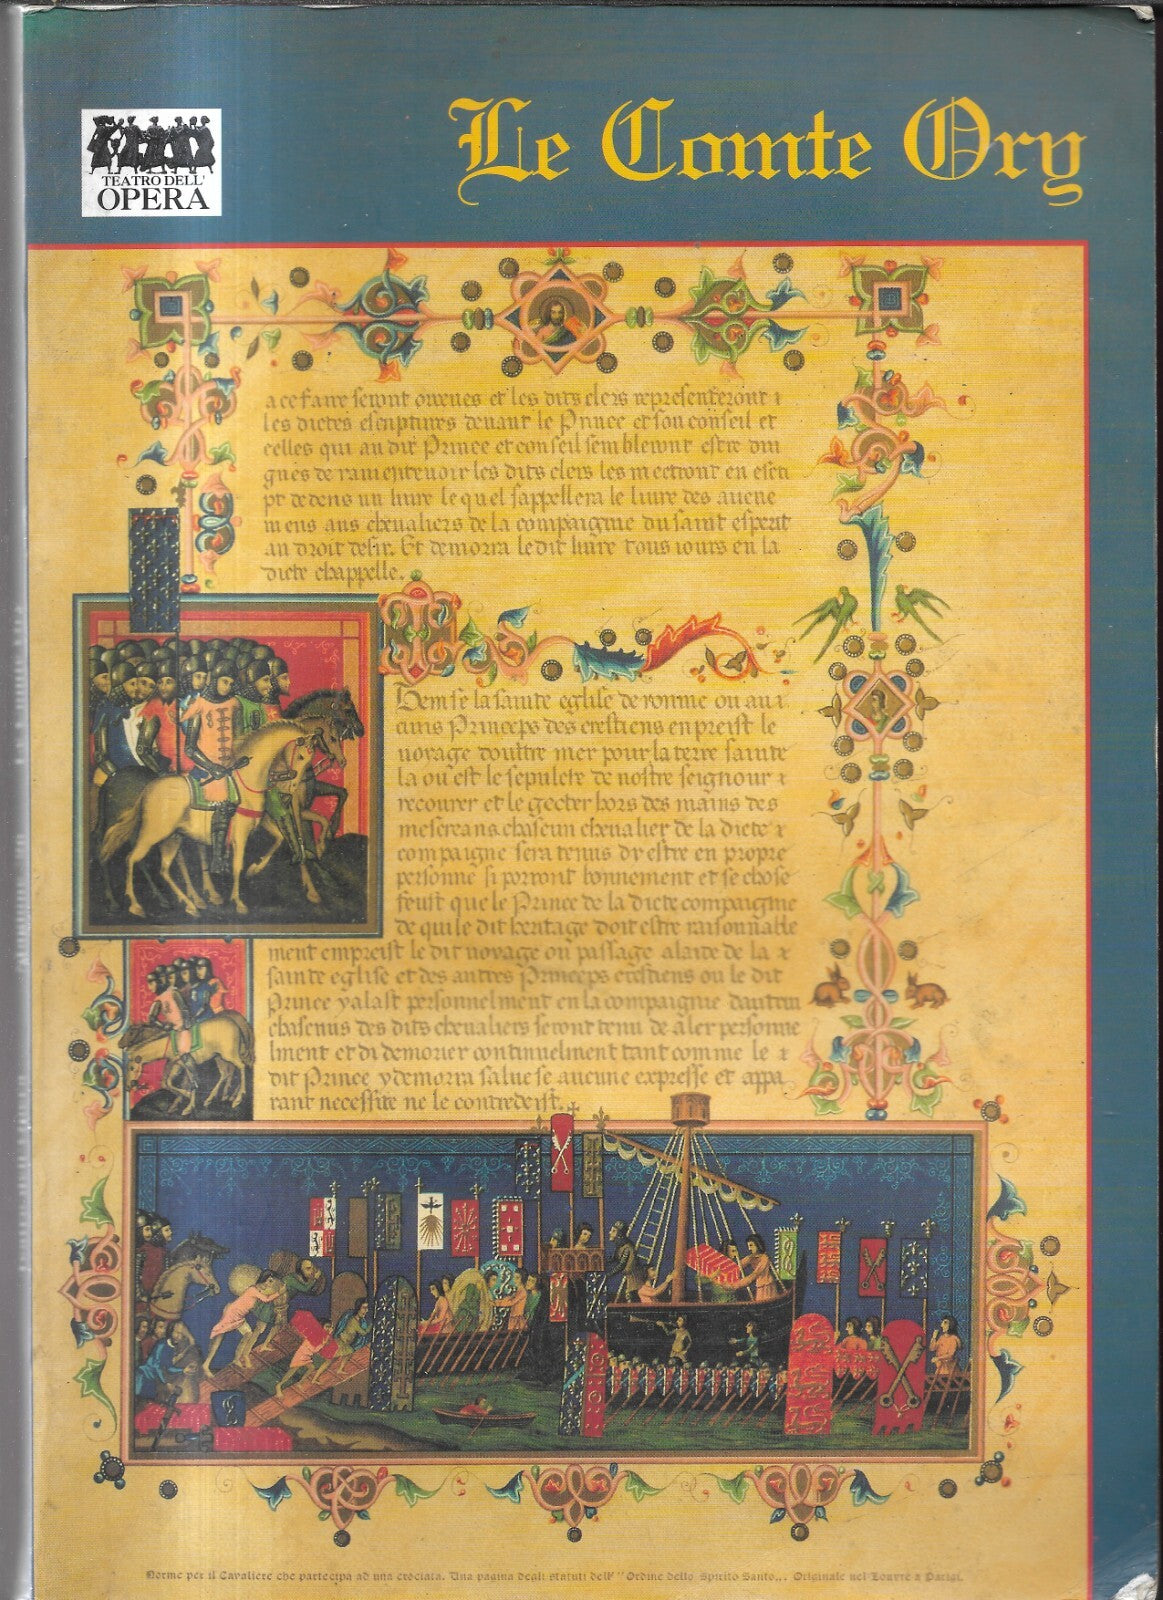 TEATRO DELL'
OPERA
Le Comte Ory
a ce faire seront oruenes et les dits clers representeront
les dictes escriptures deuant le Prince et son conseil et
celles qui au dit Prince et conseil sembleront estre din
gnes de ramenteuoir les dits clers les mectront en escri
pt dedens un liure lequel sappellera le liure des auene
mens aus cheualiers de la compaignie du saint esperit
au droit desir. Et demorra le dit liure tous iours en la
dicte chappelle.
Item se la sainte eglise de romme ou au
cuns Princeps des crestiens enpreist le
uoyage doultre mer pour la terre sainte
la ou est le sepulcre de nostre seignour
recourer et le gecter hors des mains des
mescreans chascun cheualier de la dicte
compaigne sera tenus dy estre en propre
personne si porront bonnement et se chose
feust que le Prince de la dicte compaignie
de qui le dit heritage doit estre raisonnable
ment empreist le dit uoyage ou passage alaide de la
sainte eglise et des autres Princeps crestiens ou le dit
Prince yalast personnelment en la compaignie dautrui
chascuns des dits cheualiers seront tenu de aler personne
lment et di demorer continuelment tant comme le
dit Prince y demorra salue se aucune expresse et appa
rant necessite ne le contredeist.
Norme per il Cavaliere che partecipa ad una crociata. Una pagina degli statuti dell' "Ordine dello Spirito Santo,,. Originale nel Louvre a Parigi.